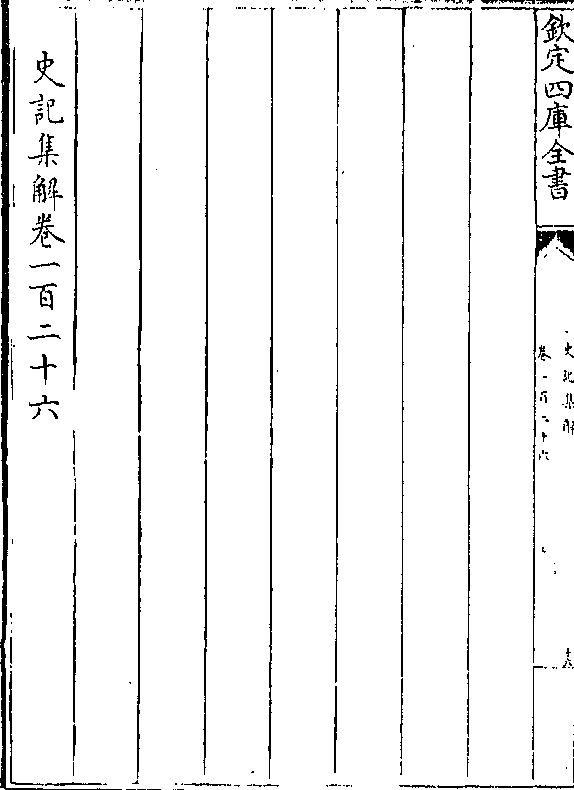 欽定四庫全書
史記集解
卷一百二十六
史記集解卷一百二十六